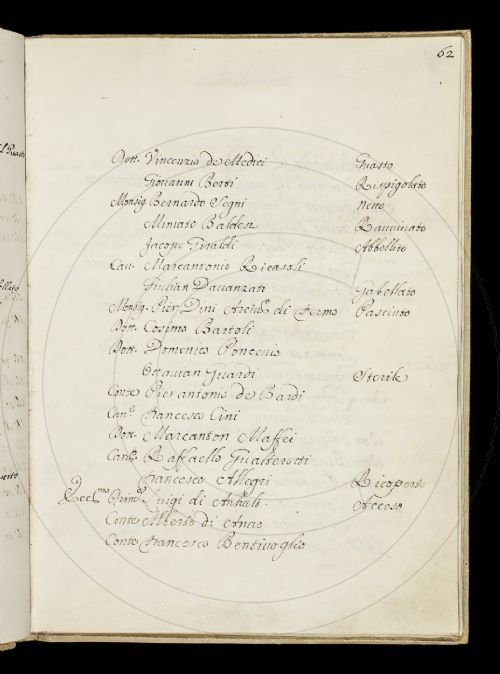 62
Dott. Vincenzio de Medici Guasto
Giovanni Berti Rispigolato
Monsig. Bernardo Segni Netto
Miniato Baldesi Ravvivato
Jacopo Giraldi Abbellito
Can. Marcantonio Ricasoli
Giulian Davanzati Gabellato
Monsig. Pier Dini Arcivo di Fermo Pasciuto
Dott. Cosimo Bartoli
Dott. Domenico Poncenio
Ottavian Guardi Sterile
Conte Pierantonio de Bardi
Cane Francesco Cini
Dott. Marcanton Maffei
Cano Raffaello Gualterotti
Francesco Allegri Ricoperto
Luigi di Anhalt Acceso
Conte Alberto di
Conte Francesco Bentivoglio